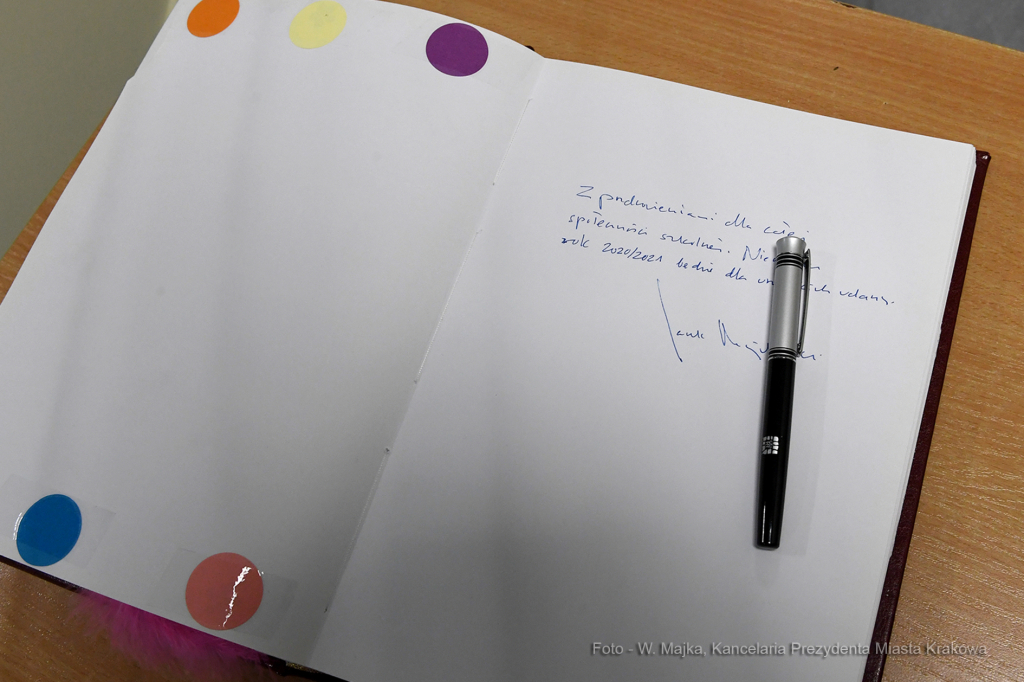 Z pozdrowieniami dla całej
społeczności szkolnej.
rok 2020/2021 będzie dla udany.
Jacek
Foto - W. Majka, Kancelaria Prezydenta Miasta Krakowa